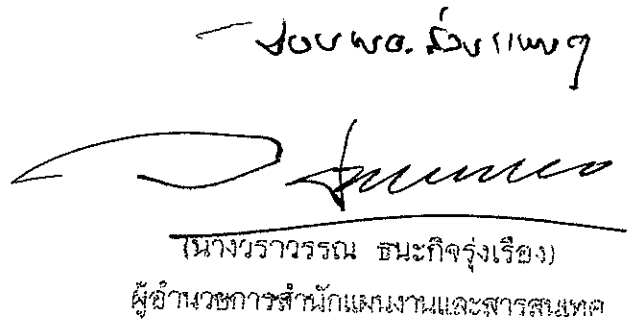 - มอบ ผอ. ส่วนแผนฯ
(นางวราวรรณ ธนะกิจรุ่งเรือง)
ผู้อำนวยการสำนักแผนงานและสารสนเทศ